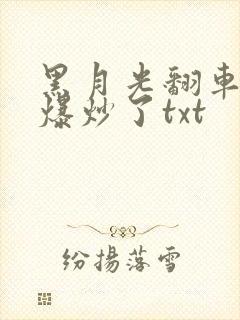 黑月光翻車
爆炒了txt
纷揚落雪